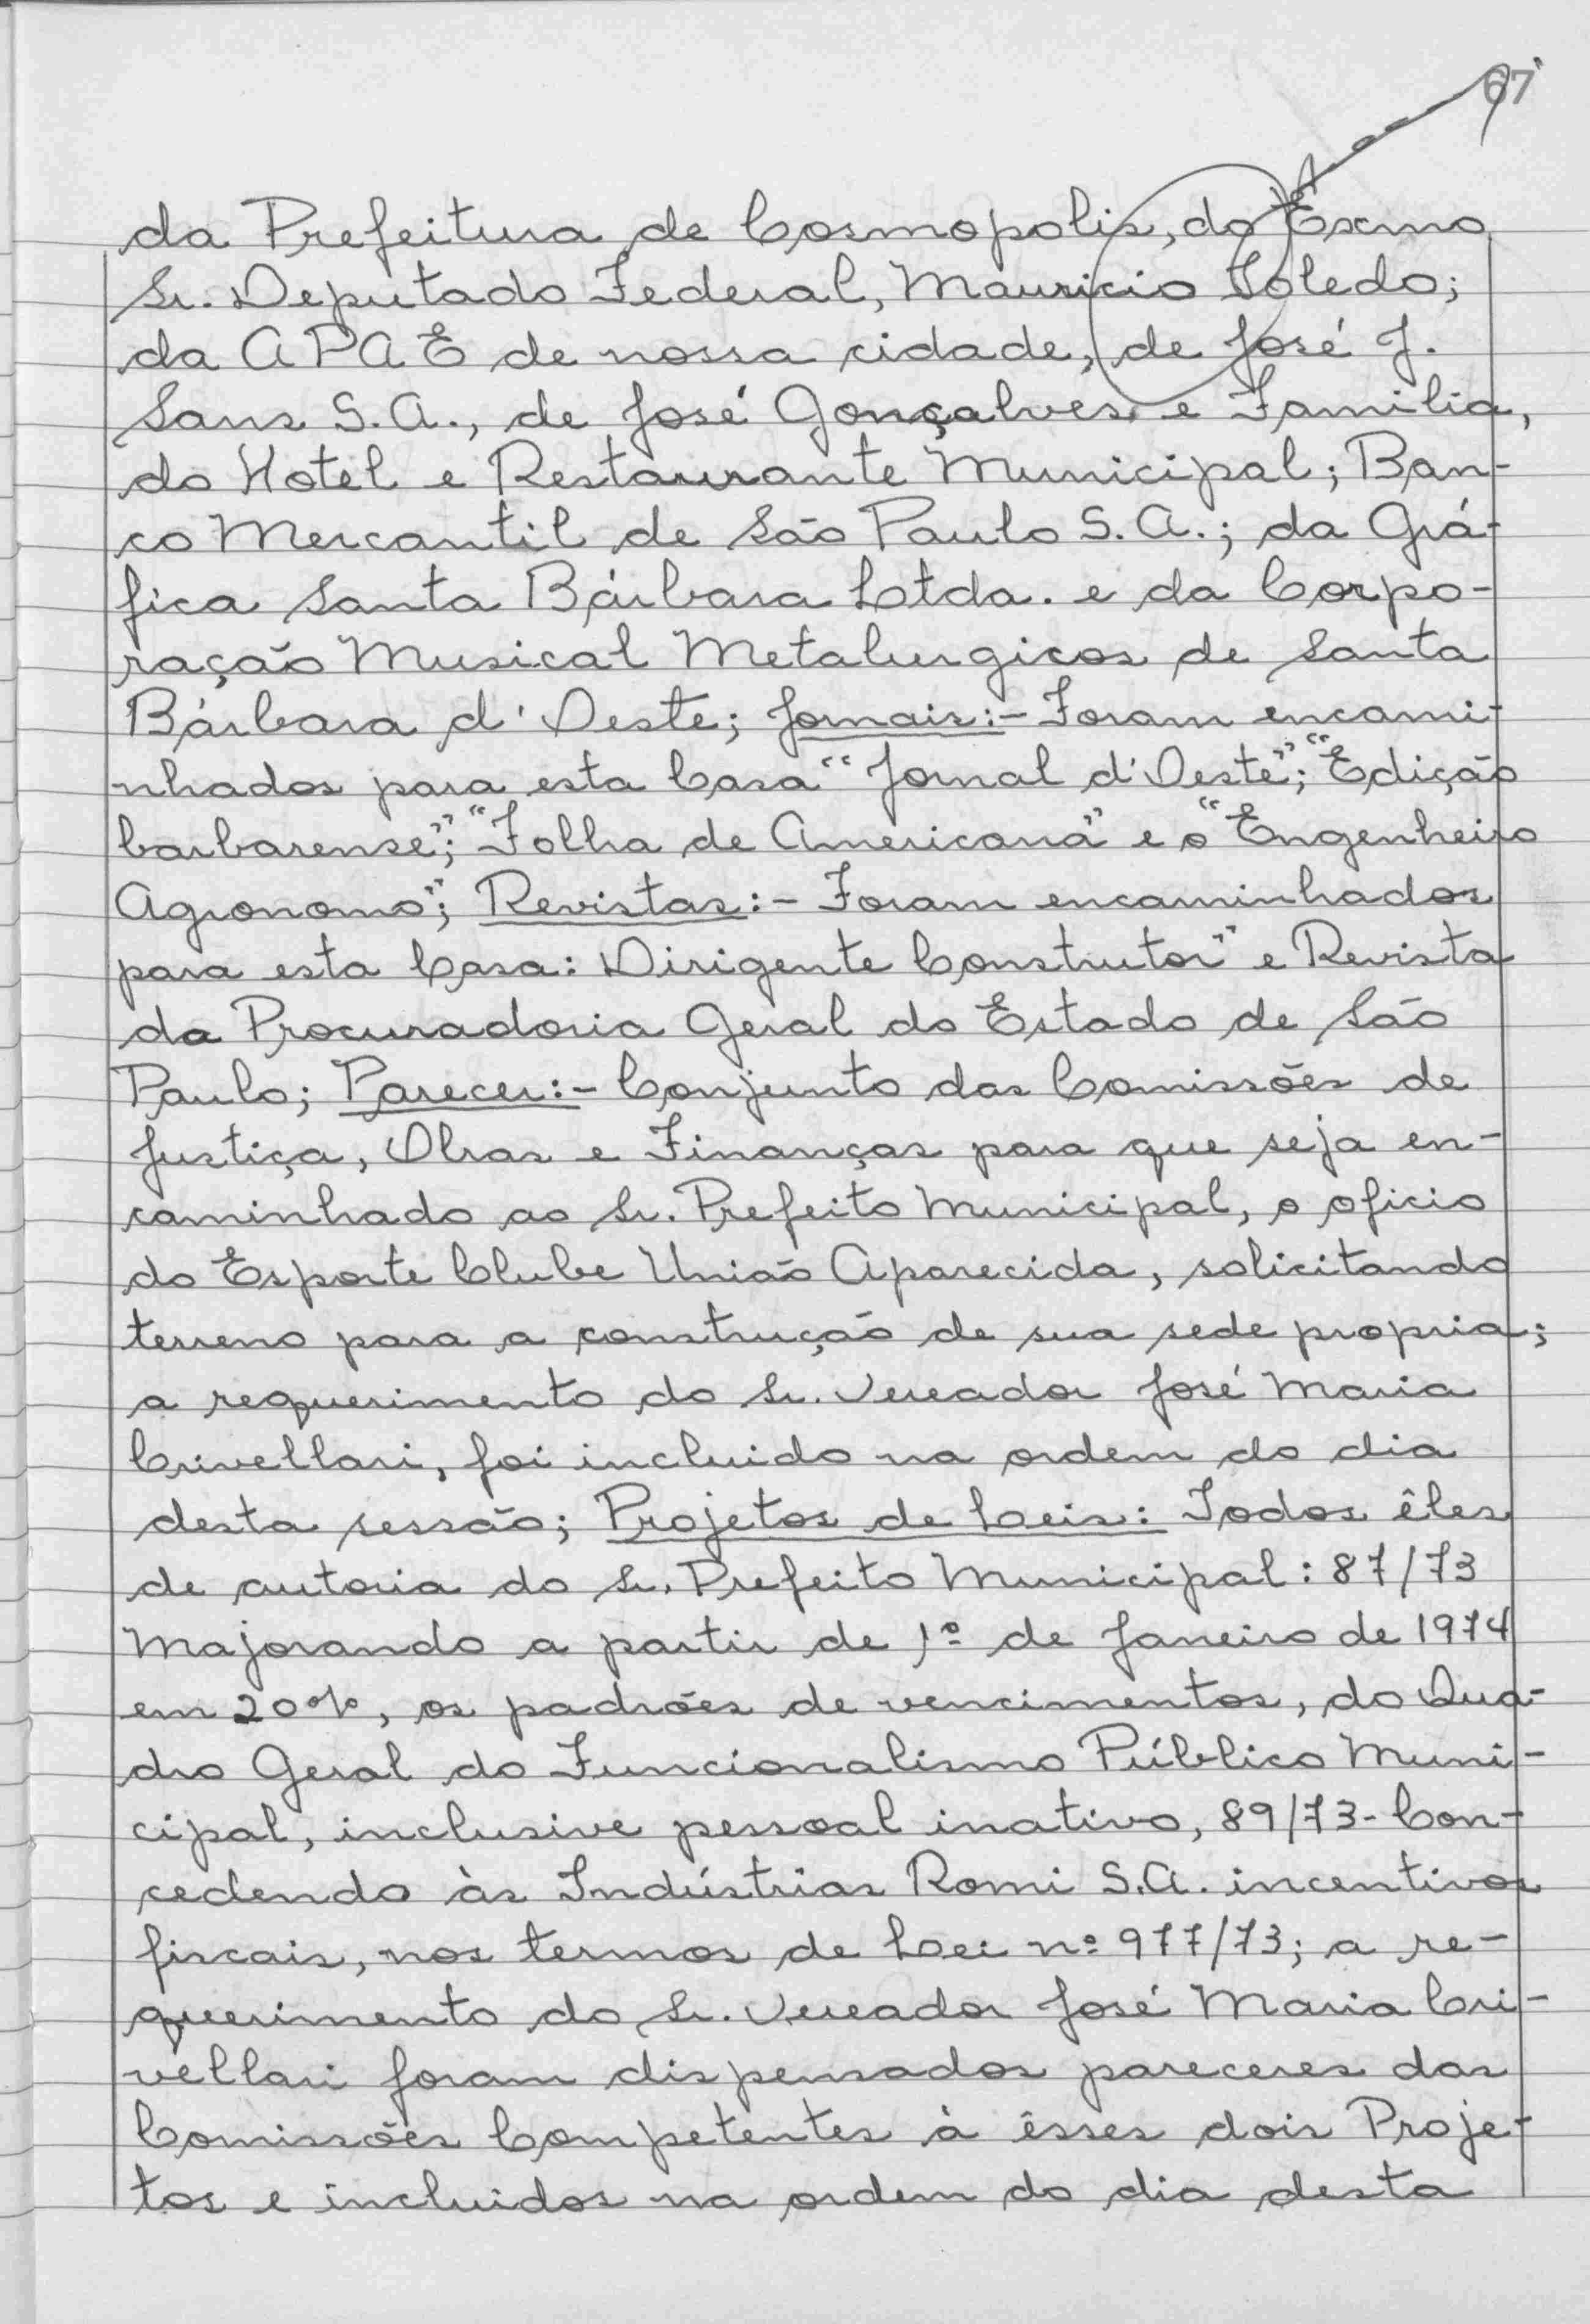 67
da Prefeitura de Cosmopolis, do Exmo
Sr. Deputado Federal, Mauricio Toledo;
da APAE de nossa cidade, de José J.
Sans S.A., de José Gonçalves e Familia,
do Hotel e Restaurante Municipal; Ban-
co Mercantil de São Paulo S.A.; da Grá-
fica Santa Bárbara Ltda. e da Corpo-
ração Musical Metalurgicos de Santa
Bárbara d'Oeste; Jornais:- Foram encami-
nhados para esta Casa "Jornal d'Oeste"; "Edição
barbarense"; "Folha de Americana" e o "Engenheiro
Agronomo"; Revistas:- Foram encaminhados
para esta Casa: Dirigente Construtor" e Revista
da Procuradoria Geral do Estado de São
Paulo; Parecer:- Conjunto das Comissões de
Justiça, Obras e Finanças para que seja en-
caminhado ao Sr. Prefeito Municipal, o oficio
do Esporte Clube União Aparecida, solicitando
terreno para a construção de sua sede propria;
a requerimento do Sr. Vereador José Maria
Crivellari, foi incluido na ordem do dia
desta sessão; Projetos de Leis: Todos êles
de autoria do Sr. Prefeito Municipal: 87/73
Majorando a partir de 1º de Janeiro de 1974
em 20%, os padrões de vencimentos, do Qua-
dro Geral do Funcionalismo Público Muni-
cipal, inclusive pessoal inativo, 89/73- Con-
cedendo às Indústrias Romi S.A. incentivos
fiscais, nos termos de Lei nº 977/73; a re-
querimento do Sr. Vereador José Maria Cri-
vellari foram dispensados pareceres das
Comissões Competentes à êsses dois Proje-
tos e incluidos na ordem do dia desta